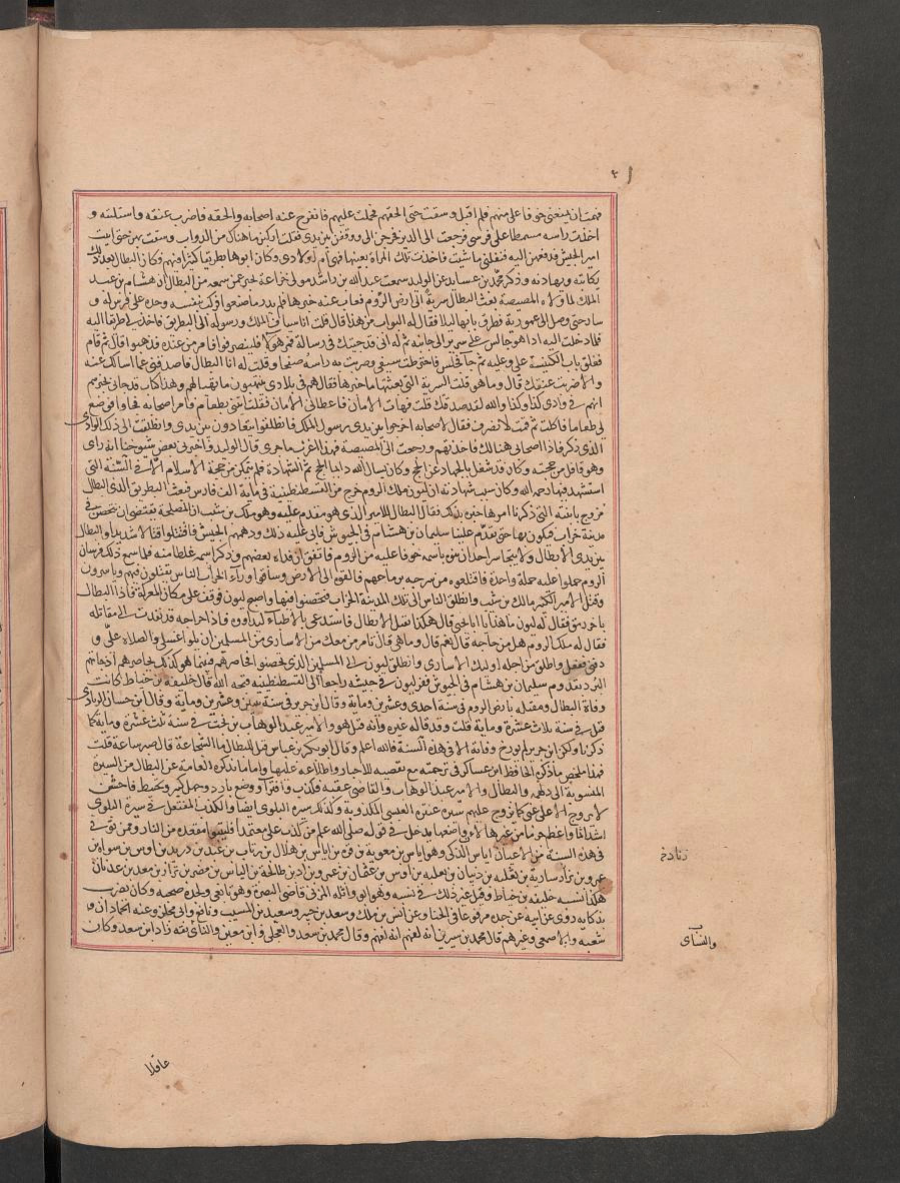 فهمت ان يمنعني خوفا على منهم فلم اقبل وسقت حتى الحقهم فحملت عليهم فانفرج عنه اصحابه والحقه فاضرب عنقه واستلبته و
اخذت راسه مسمطا على فرسي فرجعت الى الدير فخرجن الى ووقفن بين يدي فقلت اركبن ما هناك من الدواب وسقت بهن حتى اتيت
امير الجيش فدفعهن اليه فنفلني ما شيت فاخذت تلك المراة بعينها فهي ام اولادي وكان ابوها بطريقا كبيرا فيهم فكان البطال بعد ذلك
يكاتبه ويهاديه وذكر محمد بن عايد عن الوليد سمعت عبد الله بن راشد مولى خزاعة يخبر عمن سمعه من البطال ان هشام بن عبد
الملك لما ولاه المصيصة بعث البطال سرية الى ارض الروم فغاب عنه خبرها فلم يدر ما صنعوا فركب بنفسه وحده على فرس له و
سار حتى وصل الى عمورية فطرق بابها ليلا فقال له البواب من هذا قال قلت انا سياف الملك ورسوله الى البطريق فاخذ لي طريقا اليه
فلما دخلت اليه اذا هو جالس على سرير الى جانبه ثم له اني قد جيتك في رسالة فمر هولاء فلينصرفوا فامر من عنده فذهبوا قال ثم قام
فغلق باب الكنيسة على وعليه ثم جا فجلس فاخترطت سيفي وضربت به راسه صفحا وقلت له انا البطال فاصدقني عما اسالك عنه
والا ضربت عنقك قال وما هو قلت السرية التي بعثتها ما خبرها فقال هم في بلادي ينتهبون ما تهيا لهم وهذا كتاب قد جاني يخبر
انهم في وادي كذا وكذا والله لقد صدقتك قلت فهات الامان فاعطاني الامان فقلت ايتني بطعام فامر اصحابه فجاوا فوضع
لي طعاما فاكلت ثم قمت لانصرف فقال لاصحابه اخرجوا بين يدي رسول الملك فانطلقوا يتعادون بين يدي وانطلقت الى ذلك الوادي
الذي ذكر فاذا اصحابي هنالك فاخذتهم ورجعت الى المصيصة فهذا اغرب ما جرى قال الوليد واخبرني بعض شيوخنا انه راى
وهو قافل من حجته وكان قد شغل بالجهاد عن الحج وكان يسال الله دايما الحج ثم الشهادة فلم يتمكن من حجة الاسلام الا في السنة التي
استشهد فيها رحمه الله وكان سبب شهادته ان ليون ملك الروم خرج من القسطنطينية في ماية الف فارس فبعث البطريق الذي البطال
متزوج بابنته التي ذكرنا امرها يخبره بذلك فقال البطال للامير الذي هو مقدم عليه وهو ملك بن شبيب ان المصلحة تقتضي ان نتحصن في
مدينة حران فنكون بها حتى يقدم علينا سليمان بن هشام في الجيوش فابى عليه ذلك ودهمهم الجيش فاقتتلوا قتالا شديدا والبطال
بين يدي الابطال ولا يتجاسر احد ان ينوه باسمه خوفا عليه من الروم فاتفق ان ناداه بعضهم وذكر اسمه غلطا منه فلما سمع ذلك فرسان
الروم حملوا عليه حملة واحدة فاقتلعوه من سرجه برماحهم فالقوه الى الارض وساقوا وراء الناس يقتلون فيهم وياسرون
وقتل الامير الكبير مالك بن شبيب وانطلق الناس الى تلك المدينة الخراب فتحصنوا فيها واصبح ليون فوقف على مكان المعركة فاذا البطال
باخر رمق فقال له ليون ما هذا يا ابا يحيى قال هكذا تقتل الابطال فاستدعى بالاطباء ليداووه فاذا جراحه قد نفذت الى مقاتله
فقال له ملك الروم هل من حاجة قال نعم قال وما هي قال تامر من معك من الاسارى من المسلمين ان يلوا غسلي والصلاة على و
دفني ففعل واطلق من اجله اوليك الاسارى وانطلق ليون الى المسلمين الذي تحصنوا فحاصرهم فبينما هو كذلك يحاصرهم اذ جاءتهم
البرد بقدوم سليمان بن هشام في الجيوش ففر ليون في جيشه راجعا الى القسطنطينيه قبحه الله قال خليفة بن خياط كانت
وفاة البطال ومقتله بارض الروم في سنة احدى وعشرين ومايه وقال ابن جرير في سنة ثنتين وعشرين وماية وقال ابن حسان الزيادي
قتل في سنة ثلاث عشرة وماية قلت وقد قاله غيره وانه قتل هو والامير عبد الوهاب بن بخت في سنة ثلث عشرة وماية كما
ذكرنا ولكن ابن جرير لم يورخ وفاته الا في هذه السنة فالله اعلم وقال ابو بكر بن عياش قيل للبطال ما الشجاعة قال صبر ساعة قلت
فهذا ملخص ما ذكره الحافظ ابن عساكر في ترجمته مع تقصيه للاخبار واطلاعه عليها واما ما تذكره العامة عن البطال من السيرة
المنسوبة الى دلهمه والبطال والامير عبد الوهاب والقاضي عقبه فكذب وافتراء ووضع بارد وجهل كبير وتخبط فاحش
لا يروج الا على غبي كما يروج عليهم سيرة عنترة العبسي المكذوبة وكذلك سيره البلوي ايضا والكذب المفتعل في سيرة البكري
اشد اثما واعظم جرما من غيرها لان واضعها يدخل في قوله صلى الله عليه من كذب على متعمدا فليتبوا مقعده من النار وممن توفي
في هذه السنة من الاعيان اياس الذكي وهو اياس بن معوية بن قرة بن اياس بن هلال بن رئاب بن عبيد بن دريد بن اوس بن سواه بن
عمرو بن ساريه بن ثعلبه بن ذبيان بن ثعلبه بن اوس بن عثمان بن عمرو بن اد بن طالحة بن الياس بن مضر بن نزار بن معد بن عدنان
هكذا نسبه خليفه بن خياط وقيل غير ذلك في نسبه وهو ابو واثله المزني قاضي البصرة وهو تابعي ولجده صحبه وكان يضرب
بذكايه روى عن ابيه عن جده مرفوعا في الحيا وعن انس بن ملك وسعيد بن جبير وسعيد بن المسيب ونافع وابى مجلز وعنه الحمادان و
شعبه والاصمعي وغيرهم قال محمد بن سيرين انه لفهم انه لفهم وقال محمد بن سعد والعجلي وابن معين والنسائي ثقه زاد ابن سعد وكان
والنسائي
عاقلا